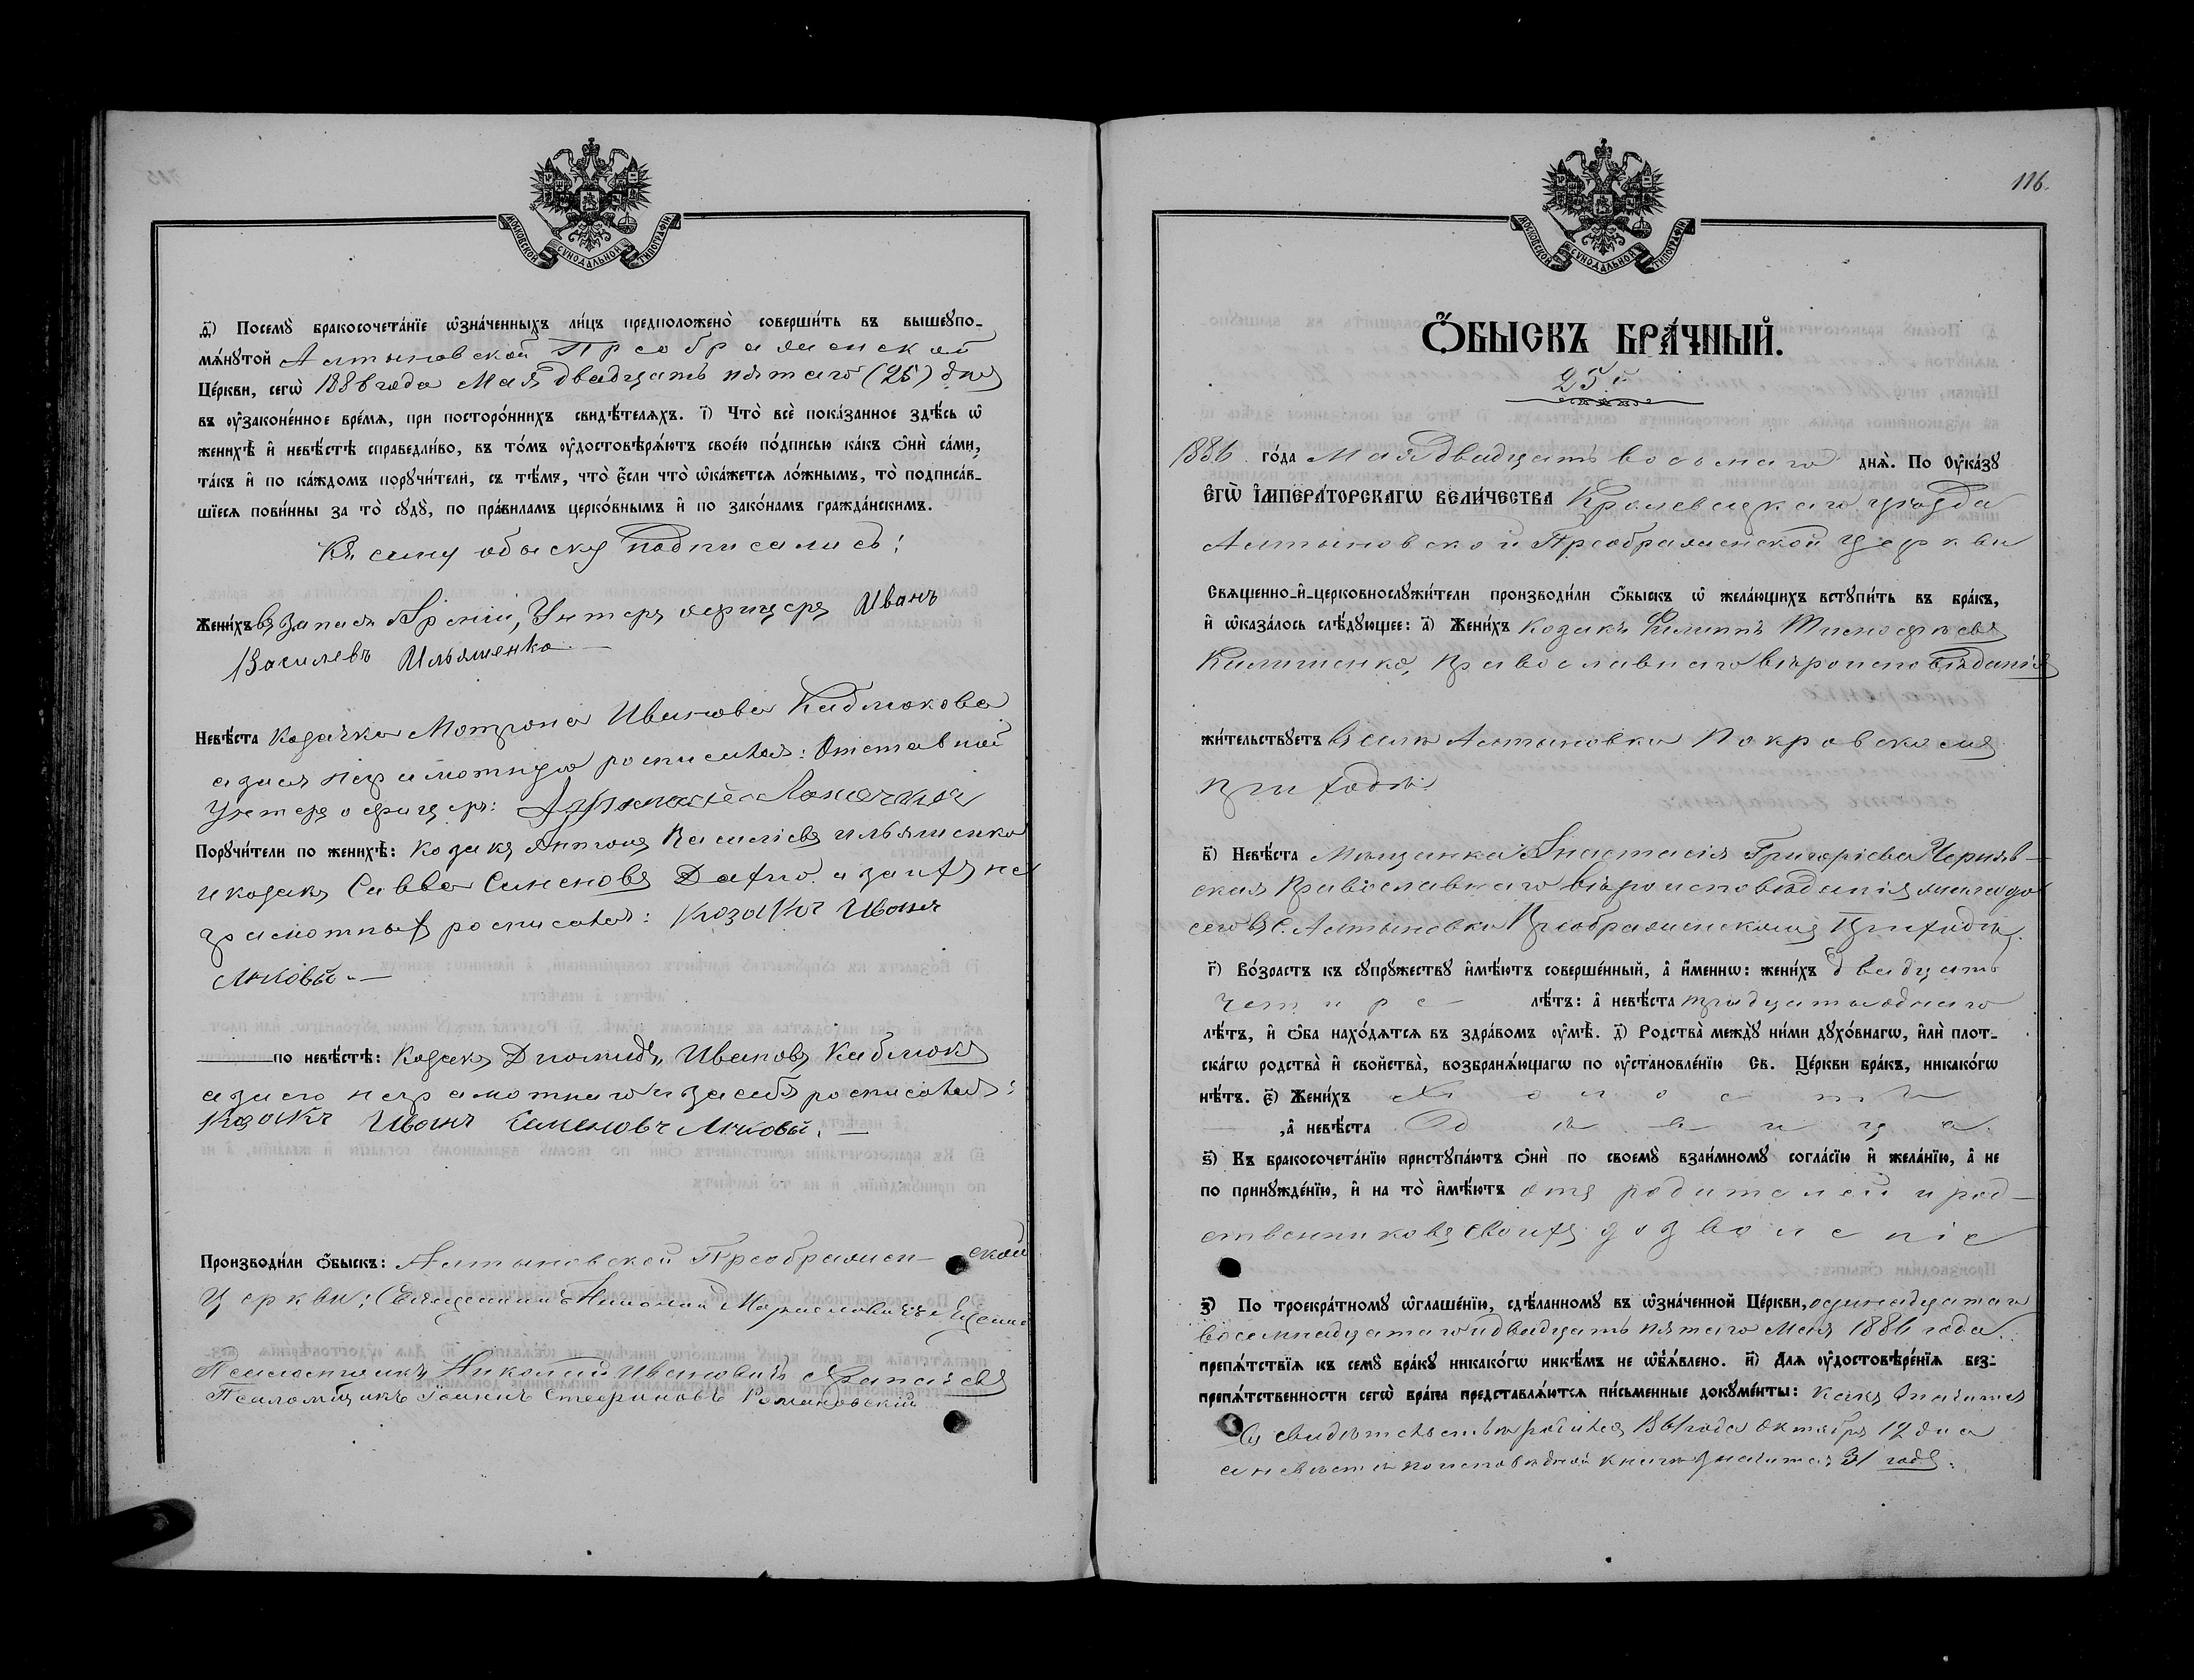 МОСКОВСКОЙ СѴНОДАЛЬНОЙ ТИПОГРАФІИ
ѳ҃) Посемꙋ̀ бракосочета́нїе ѡ҆зна́ченныхъ ли́цъ предположено̀ соверши́ть въ вышеꙋпо-
мѧ́нꙋтой Алтыновской Преображенской
Це́ркви, сегѡ̀ 1886 года Мая двадцать пятаго (25) дня
въ оу҆зако́ненное вре́мѧ, при посторо́ннихъ свидѣ́телѧхъ. і҃) Что̀ всѐ пока́занное здѣ́сь ѡ҆
женихѣ̀ и҆ невѣ́стѣ справедли́во, въ то́мъ оу҆достовѣрѧ́ютъ свое́ю по́дписью ка́къ ѻ҆нѝ са́ми,
та́къ и҆ по ка́ждомъ порꙋчи́тели, съ тѣ́мъ, что̀ є҆́сли что̀ ѡ҆ка́жетсѧ ло́жнымъ, то̀ подписа́в-
шїесѧ пови́нны за то̀ сꙋдꙋ̀, по пра́виламъ церко́внымъ и҆ по зако́намъ гражда́нскимъ.
Къ сему обыску подписались:
Жени́хъ въ запасъ Арміи, Унтеръ офицеръ Иванъ
Василевъ Ильяшенко.
Невѣ́ста Козачка Мотрона Иванова Кадлюкова
а за нея неграмотную росписался: Отставной
Унтеръ офицеръ:
Порꙋчи́тели по женихѣ̀: Козакъ Антонъ Василіевъ Ильяшенко
и козакъ Савва Симеоновъ Дахно а за ихъ не
грамотныхъ росписался: Козакъ Иванъ
Лиховый
по невѣ́стѣ: Козакъ Діомидъ Ивановъ Кадлюкъ
а за его неграмотнаго и за себя росписался:
Козакъ Иванъ Семеновъ Лиховый.
Производи́ли ѻ҆́быскъ: Алтыновской Преображен- ской
Церкви: Священникъ Николай
Псаломщикъ Николай Ивановичъ
Псаломщикъ Іоаннъ Стефановъ Романовскій
116.
МОСКОВСКОЙ СѴНОДАЛЬНОЙ ТИПОГРАФІИ
Ѻ҆́БЫСКЪ БРА́ЧНЫЙ.
25й
1886 го́да Мая двадцать восьмаго днѧ̀. По Оу҆ка́зꙋ
Є҆гѡ̀ І҆мпера́торскагѡ вели́чества Кролевецкаго уѣзда
Алтыновской Преображенской церкви
Сващенно-и҆-церковнослꙋжи́тели производи́ли ѻ҆́быскъ ѡ҆ жела́ющихъ встꙋпи́ть въ бра́къ,
и҆ ѡ҆каза́лось слѣ́дꙋющее: а҃) Жени́хъ Козакъ Филиппъ Тимофѣевъ
православнаго вѣроисповѣданія
жи́тельствꙋетъ въ селѣ Алтыновкѣ Покровскомъ
приходѣ
в҃) Невѣ́ста Мѣщанка Анастасія Григоріева Черняв-
ская Православнаго вѣроисповѣданія
въ с. Алтыновкѣ Преображенскомъ приходѣ.
г҃) Во́зрастъ къ сꙋпрꙋ́жествꙋ и҆мѣ́ютъ соверше́нный, а҆ и҆́менно: жени́хъ двадцать
четыре лѣ́тъ: а҆ невѣ́ста тридцать одного
лѣ́тъ, и҆ ѻ҆́ба нахо́дѧтсѧ въ здра́вомъ оу҆мѣ̀. д҃) Родства̀ междꙋ̀ ни́ми дꙋхо́внагѡ, и҆лѝ плот-
ска́гѡ родства̀ и҆ свойства̀, возбранѧ́ющагѡ по оу҆становле́нїю Св. Це́ркви бра́къ, никако́гѡ
нѣ́тъ. є҃) Жени́хъ Холостъ
,а҆ невѣ́ста Дѣвица.
ѕ҃) Къ бракосочета́нїю пристꙋпа́ютъ ѻ҆нѝ по своемꙋ̀ взаи́мномꙋ согла́сїю и҆ жела́нїю, а҆ не
по принꙋжде́нїю, и҆ на то̀ и҆мѣ́ютъ отъ родителей и род-
ственниковъ своихъ дозволеніе
Производи́ли ѻ҆́быскъ:
з҃) По троекра́тномꙋ ѡ҆глаше́нїю, сдѣ́ланномꙋ въ ѡ҆зна́ченной Це́ркви, одинадцатаго
восемнадцатаго и двадцать пятаго Мая 1886 года.
препѧ́тствїѧ къ семꙋ̀ бра́кꙋ никако́гѡ никѣ́мъ не ѡ҆б̾ѧ́влено. и҃) Длѧ оу҆достовѣре́нїѧ без-
препѧ́тственности сегѡ̀ бра́ка представлѧ́ютсѧ пи́сьменные докꙋме́нты: какъ значится
въ свидѣтельствѣ родился 1861 года Октября 12 дня
а невѣстѣ по исповѣдной книгѣ значится 31 годъ.